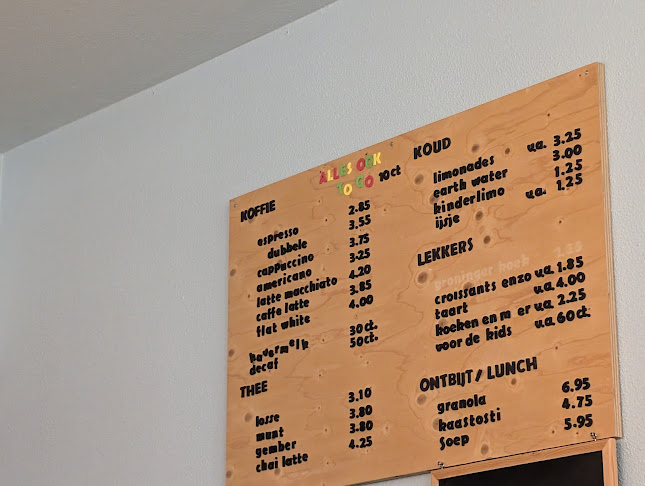 ALLES OOK
TO GO 10ct
KOFFIE
espresso 2.85
dubbele 3.55
cappuccino 3.75
americano 3.25
latte macchiato 4.20
caffe latte 3.85
flat white 4.00
havermelk 30ct.
decaf 50ct.
THEE
losse 3.10
munt 3.80
gember 3.80
chai latte 4.25
KOUD
limonades v.a. 3.25
earth water 3.00
kinderlimo 1.25
ijsje v.a. 1.25
LEKKERS
groninger koek
croissants enzo v.a. 1.85
taart v.a. 4.00
koeken en m er v.a. 2.25
voor de kids v.a. 60ct
ONTBIJT / LUNCH
granola 6.95
kaastosti 4.75
Soep 5.95